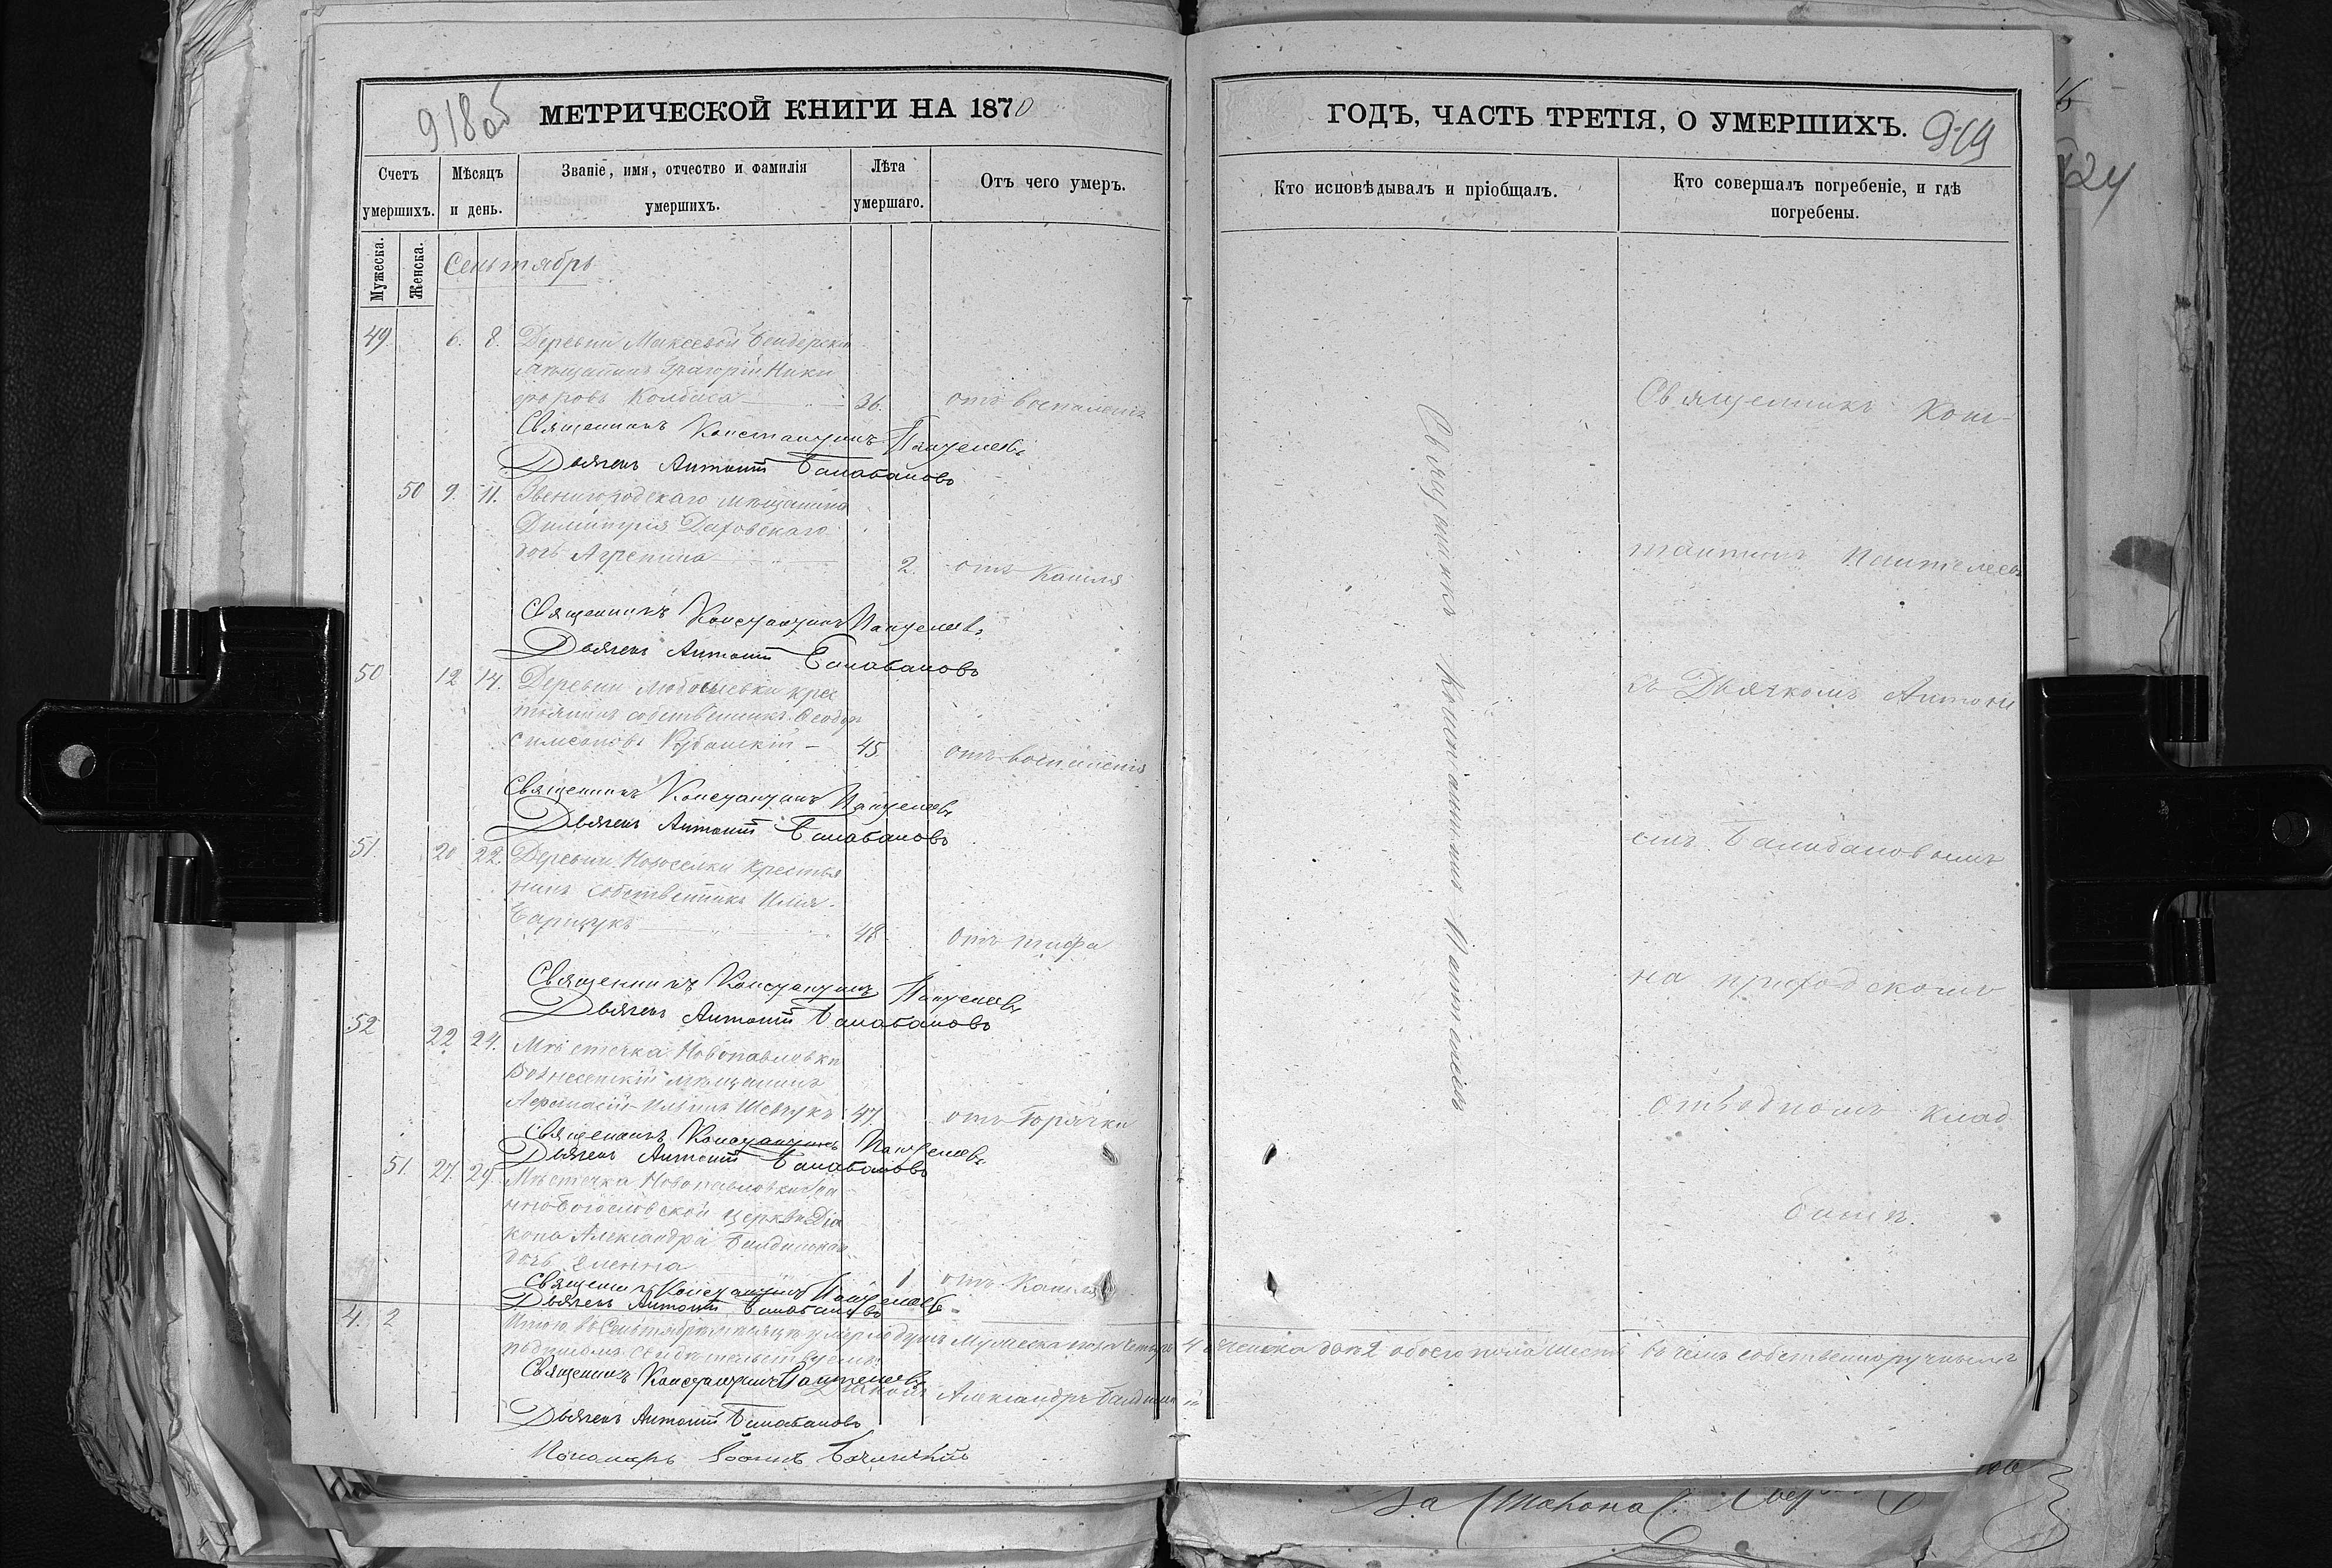 918об
МЕТРИЧЕСКОЙ КНИГИ НА 1870
Счетъ умершихъ.
Мѣсяцъ и день.
Званіе, имя, отчество и фамилія умершихъ.
Лѣта умершаго.
Отъ чего умеръ.
Мужеска.
Женска.
Сентябрь
49 6. 8. Деревни Максеевой Бендерскій
мѣщанинъ Григорій Ники
форовъ Колбаса 36. отъ воспаленія
Священникъ Константинъ Пантелеевъ
Дьячекъ Антоній Балабановъ
50 9. 11. Звенигородскаго мѣщанина
Димитрія Даховскаго
дочь Агрепина 2. отъ Кашля
Священникъ Константинъ Пантелеевъ
Дьячекъ Антоній Балабановъ
50 12 14. Деревни крес
тянинъ собственникъ Ѳеодоръ
Симеоновъ 45. отъ воспаленія
Священникъ Константинъ Пантелеевъ
Дьячекъ Антоній Балабановъ
51. 20 22. Деревни Новоселки Крестья
нинъ собственникъ Илія
48 отъ тифа
Священникъ Константинъ Пантелеевъ
Дьячекъ Антоній Балабановъ
52 22 24. Мѣстечка Новопавловки
Вознесенскій мѣщанинъ
Афанасій Ильинъ Шевчукъ 47. отъ Горячки
Священникъ Константинъ Пантелеевъ
Дьячекъ Антоній Балабановъ
51. 27. 29. Мѣстечка Новопавловки Іоа
нно-Богословской церкви Діа
кона Александра
дочь Еленна 1 отъ Кашля
Священникъ Константинъ Пантелеевъ
Дьячекъ Антоній Балабановъ
4. 2 Итого въ Сентябрѣ мѣсяцѣ умерло душъ Мужеска пола четыре 4 Женска два 2 обоего пола шесть въ чемъ собственноручнымъ
подписомъ свидѣтельствуемъ
Священникъ Константинъ Пантелеевъ
Діаконъ Александръ
Дьячекъ Антоній Балабановъ
Пономарь
ГОДЪ, ЧАСТЬ ТРЕТІЯ, О УМЕРШИХЪ.
919
Кто исповѣдывалъ и пріобщалъ.
Кто совершалъ погребеніе, и гдѣ погребены.
Священникъ Константинъ Пантелеевъ
Священникъ Конс-
тантинъ Пантелеевъ
съ Дьячкомъ Антоні
емъ Балабановымъ
на приходскомъ
отводномъ клад
бищѣ.